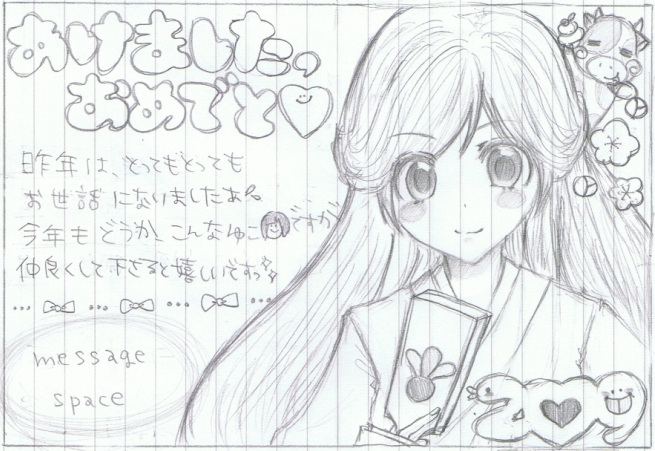 あけましたの
おめでと♡
昨年は、とってもとっても
お世話になりましたあ
今年もどうか、こんなゆこですが
仲良くして下さると嬉しいですっ
message
space
2009